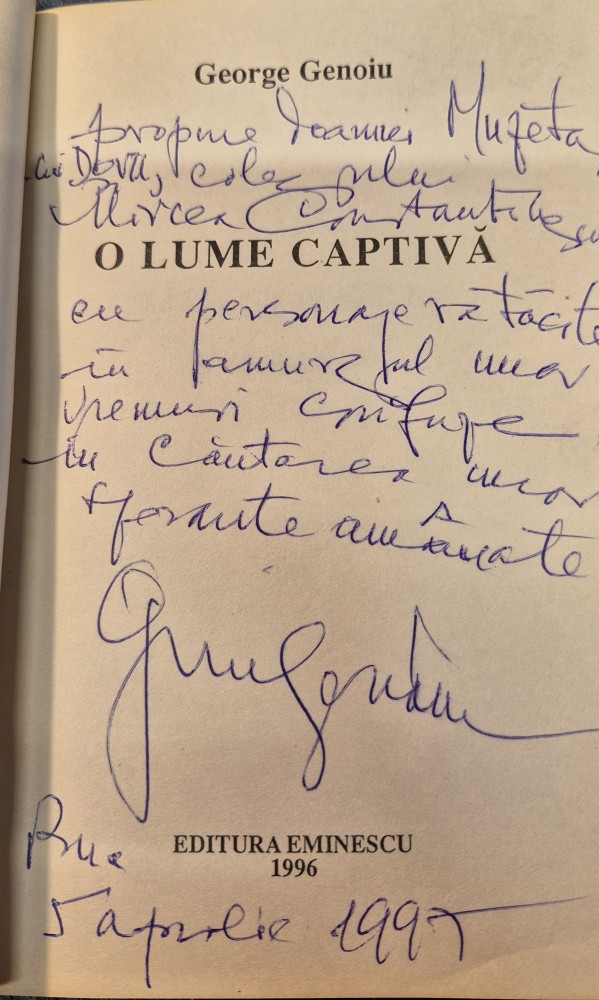 George Genoiu
propune doamnei Muzeta
lui Doru, colegului
Mircea Constantinescu
O LUME CAPTIVĂ
cu personaje rătăcite
în amurgul unor
vremuri confuze,
în căutarea unor
speranțe amânate
EDITURA EMINESCU
1996
Buc
5 aprilie 1997